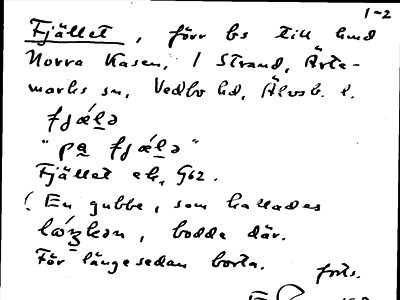 1-2
Fjället, förr bs till und
Norra Kasen, 1 Strand, Ärte-
marks sn, Vedbo hd, Älvsb. l.
fjǽl̲ə
"pa̲ fjǽl̲ə"
Fjället ek, G62.
(En gubbe, som kallades
bodde där.
För länge sedan borta.
forts.